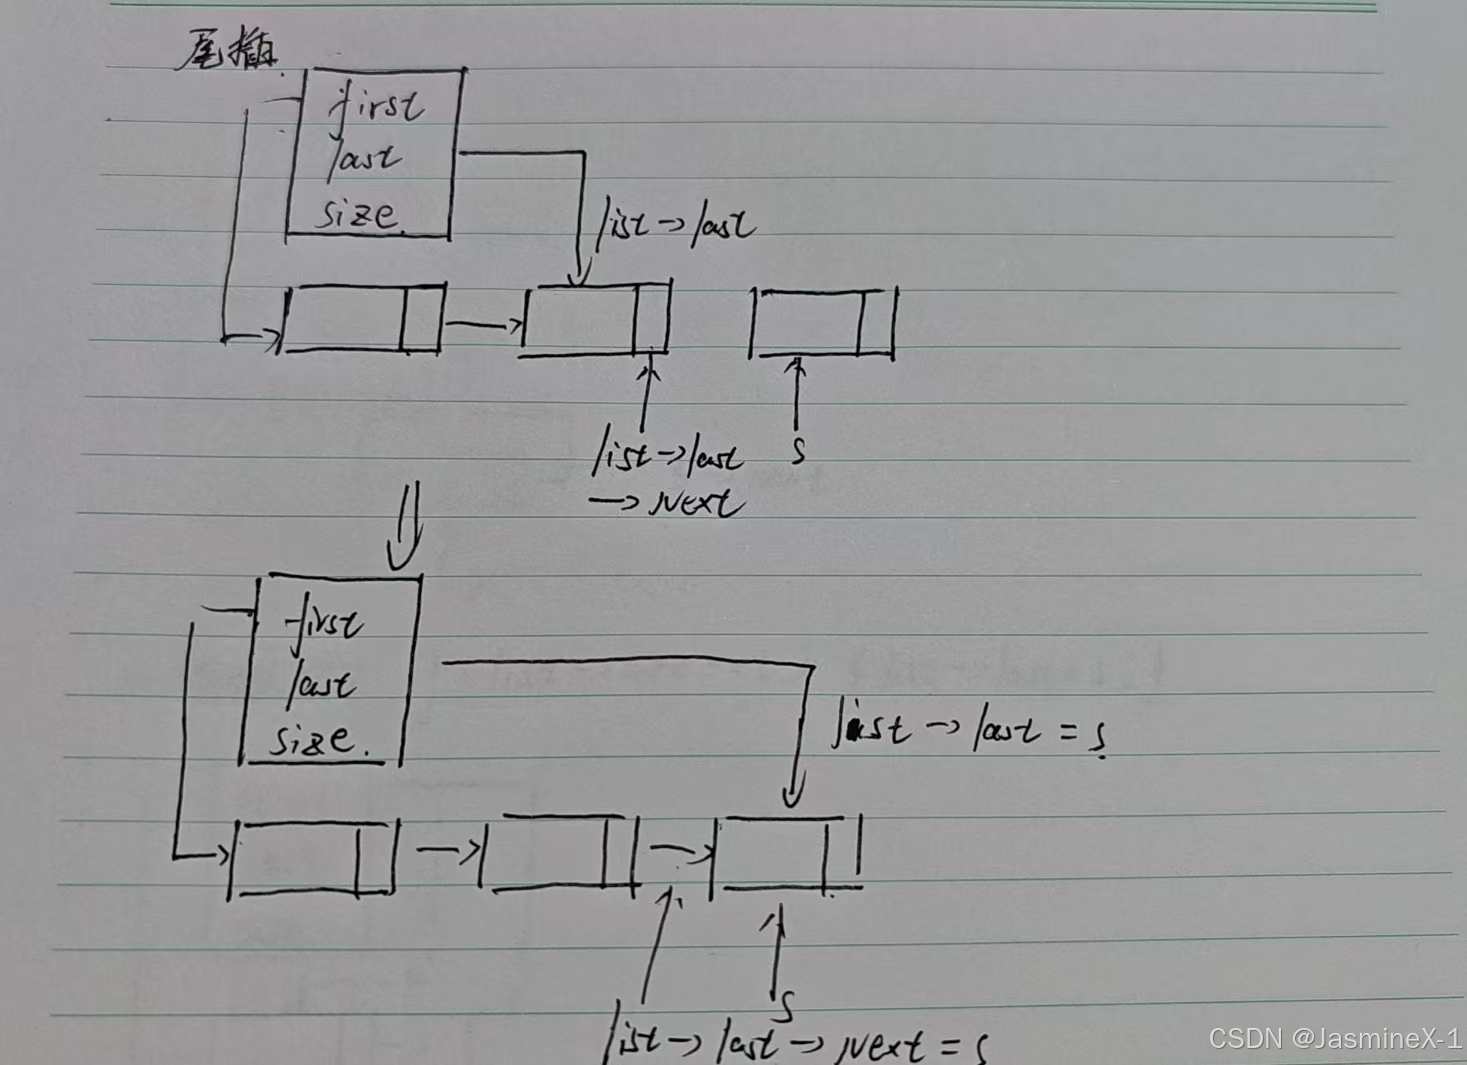 尾插
first
last
size.
list→last
list→last
→Next
s
first
last
size.
list→last=s
s
list→last→Next=s
CSDN @JasmineX-1